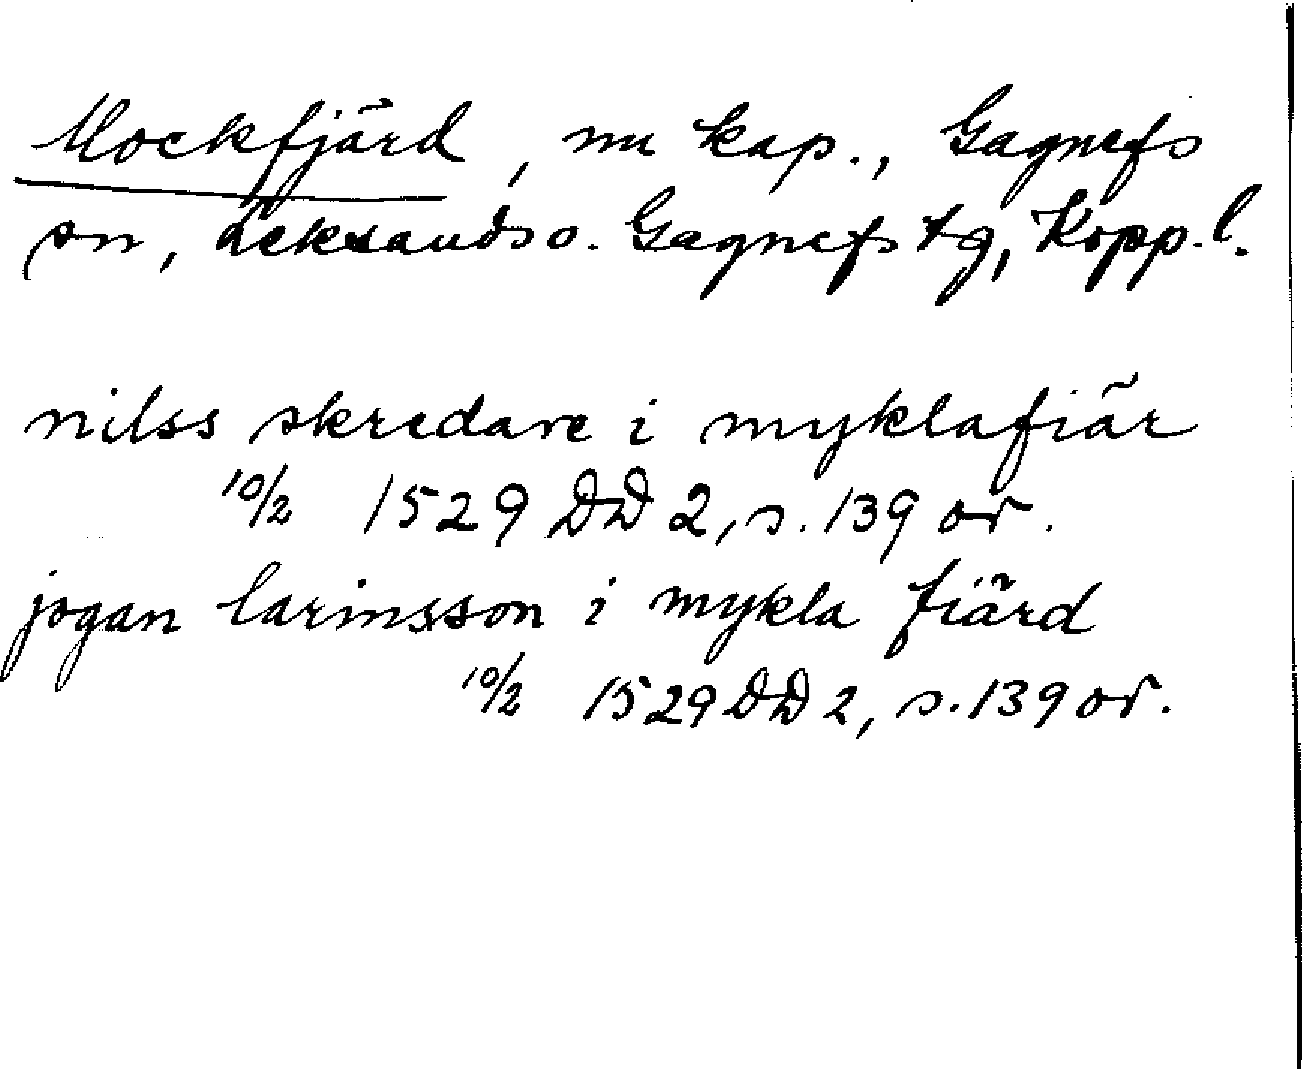 Mockfjärd, nu kap., Gagnefs
sn, Leksands o. Gagnefs tg, Kopp. l.
nilss skredare i myklafiär
10/2 1529 DD 2, s. 139 or.
jogan larinsson i mykla fiärd
10/2 1529 DD 2, s. 139 or.